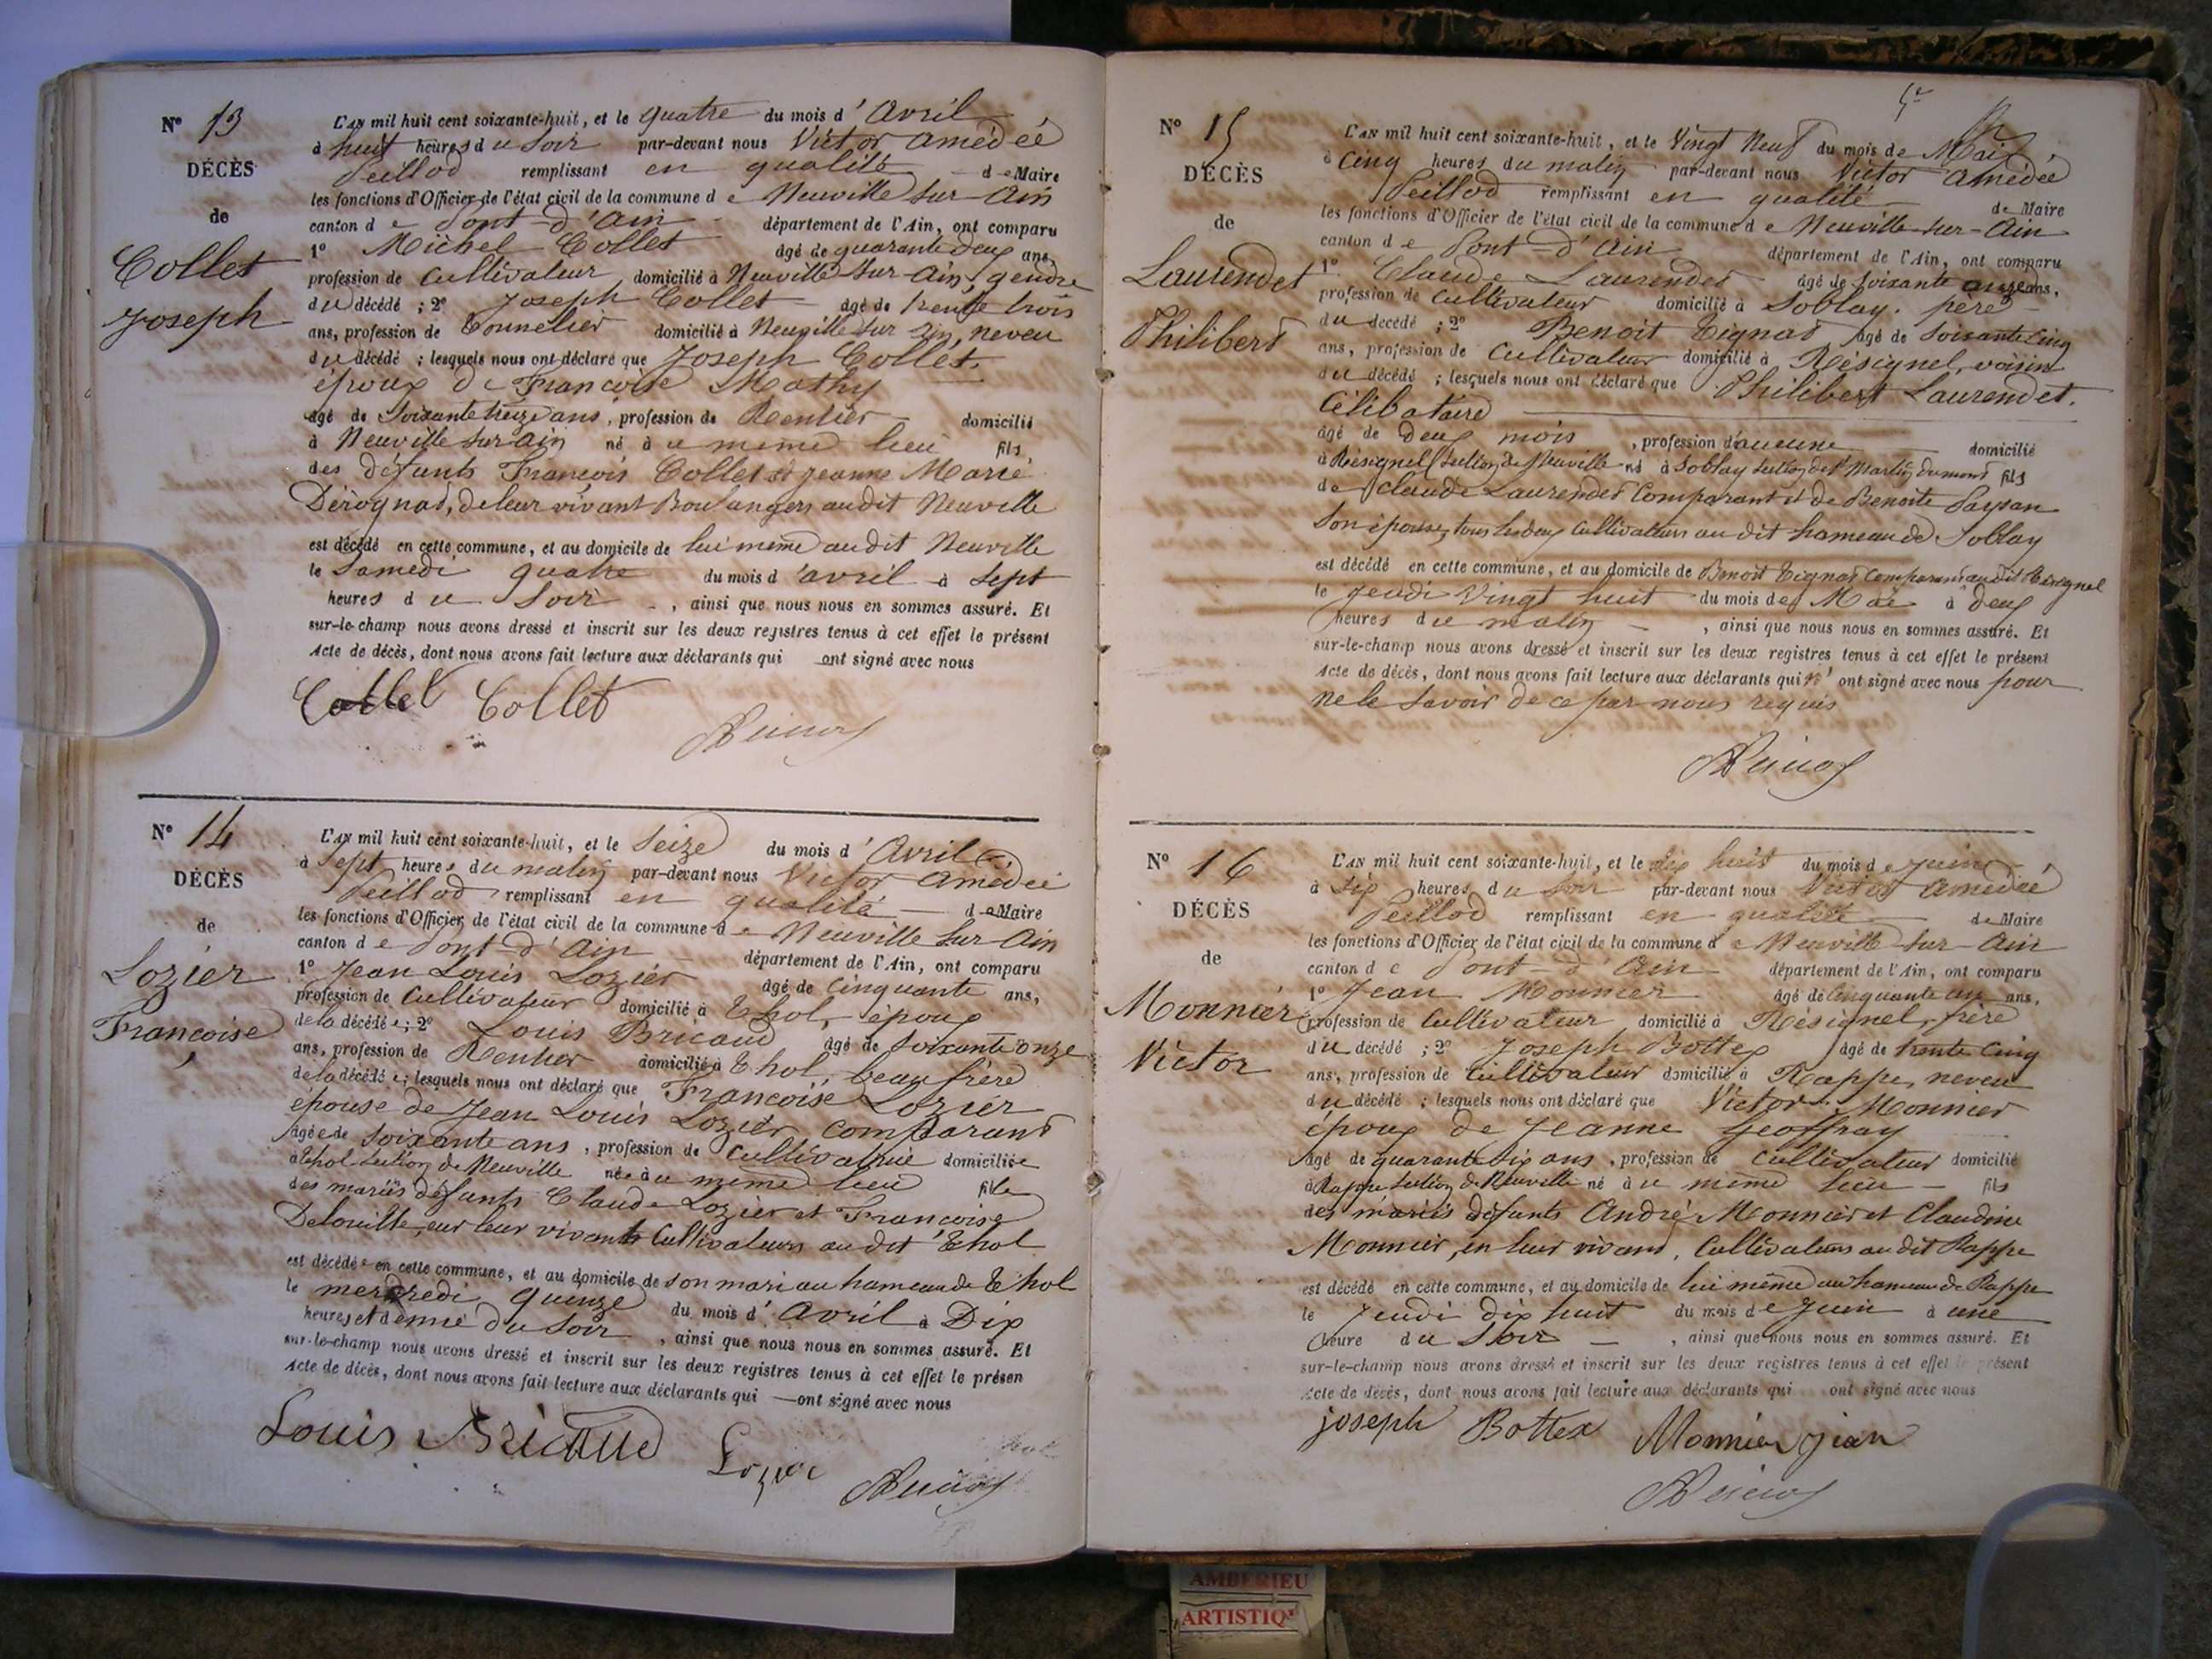 N° 13
DÉCÈS
de
Collet
Joseph
L'AN mil huit cent soixante-huit, et le quatre du mois d'Avril
à huit heures du soir par-devant nous Victor Amédée
Peillod remplissant en qualité de Maire
les fonctions d'Officier de l'état civil de la commune de Neuville sur-Ain
canton de Pont-d'Ain département de l'Ain, ont comparu
1° Michel Collet âgé de quarante deux ans,
profession de Cultivateur domicilié à Neuville-sur-Ain, gendre
du décédé ; 2° Joseph Collet âgé de trente trois
ans, profession de Tonnelier domicilié à Neuville sur Ain, neveu
du décédé ; lesquels nous ont déclaré que Joseph Collet,
époux de Françoise Mathy
âgé de Soixante treize ans, profession de Rentier domicilié
à Neuville sur ain né à u même lieu fils
des défunts François Collet et Jeanne Marie
Dérognat, de leur vivant Boulangers audit Neuville
est décédé en cette commune, et au domicile de lui même audit Neuville
le Samedi quatre du mois d'avril à Sept
heures du Soir, ainsi que nous nous en sommes assuré. Et
sur-le-champ nous avons dressé et inscrit sur les deux registres tenus à cet effet le présent
Acte de décès, dont nous avons fait lecture aux déclarants qui ont signé avec nous
Collet Collet
N° 14
DÉCÈS
de
Lozier
Françoise
L'AN mil huit cent soixante-huit, et le Seize du mois d'Avril
à Sept heures du matin par-devant nous Victor Amédée
Peillod remplissant en qualité de Maire
les fonctions d'Officier de l'état civil de la commune de Neuville sur-Ain
canton de Pont-d'Ain département de l'Ain, ont comparu
1° Jean Louis Lozier âgé de Cinquante ans,
profession de Cultivateur domicilié à Thol, époux
de la décédée ; 2° Louis Bricaud âgé de Soixante onze
ans, profession de Rentier domicilié à Thol, beau frère
de la décédée ; lesquels nous ont déclaré que Françoise Lozier
épouse de Jean Louis Lozier comparant
âgée de Soixante ans, profession de Cultivatrice domiciliée
à Thol Section de Neuville née à u même lieu fille
des mariés défunts Claude Lozier et Françoise
en leur vivant Cultivateurs audit Thol
est décédée en cette commune, et au domicile de son mari au hameau de Thol
le mercredi quinze du mois d'Avril à Dix
heures et demie du Soir, ainsi que nous nous en sommes assuré. Et
sur-le-champ nous avons dressé et inscrit sur les deux registres tenus à cet effet le présen
Acte de décès, dont nous avons fait lecture aux déclarants qui ont signé avec nous
Louis Bricaud Lozier
N° 15
DÉCÈS
de
Laurendet
Philibert
L'AN mil huit cent soixante-huit, et le Vingt Neuf du mois de Mai
à Cinq heures du matin par-devant nous Victor Amédée
Peillod remplissant en qualité de Maire
les fonctions d'Officier de l'état civil de la commune de Neuville-sur-Ain
canton de Pont-d'Ain département de l'Ain, ont comparu
1° Claude Laurendet âgé de Soixante ans,
profession de Cultivateur domicilié à Soblay, père
du décédé ; 2° Benoit Tignat âgé de Soixante Cinq
ans, profession de Cultivateur domicilié à Résignel, voisin
du décédé ; lesquels nous ont déclaré que Philibert Laurendet,
Célibataire
âgé de Deux mois, profession d'aucune domicilié
à Résignel Section de Neuville né à Soblay Section de St Martin du mont fils
de Claude Laurendet Comparant et de Benoite
Son épouse, tous les deux Cultivateurs au dit hameau de Soblay
est décédé en cette commune, et au domicile de Benoit Tignat Comparant audit Résignel
le Jeudi Vingt huit du mois de Mai à deux
heures du matin, ainsi que nous nous en sommes assuré. Et
sur-le-champ nous avons dressé et inscrit sur les deux registres tenus à cet effet le présent
Acte de décès, dont nous avons fait lecture aux déclarants qui n'ont signé avec nous pour
ne le Savoir de ce par nous requis
N° 16
DÉCÈS
de
Monnier
Victor
L'AN mil huit cent soixante-huit, et le dix huit du mois de Juin
à Six heures du Soir par-devant nous Victor Amédée
Peillod remplissant en qualité de Maire
les fonctions d'Officier de l'état civil de la commune de Neuville-sur-Ain
canton de Pont-d'Ain département de l'Ain, ont comparu
1° Jean Monnier âgé de Cinquante ans,
profession de Cultivateur domicilié à Résignel, frère
du décédé ; 2° Joseph Bottex âgé de trente Cinq
ans, profession de Cultivateur domicilié à Rappe, neveu
du décédé ; lesquels nous ont déclaré que Victor Monnier
époux de Jeanne Geoffray
âgé de quarante Six ans, profession de Cultivateur domicilié
à Rappe Section de Neuville né à u même lieu fils
des mariés défunts André Monnier et Claudine
Monnier, en leur vivant, Cultivateurs au dit Rappe
est décédé en cette commune, et au domicile de lui même au hameau de Rappe
le Jeudi dix huit du mois de Juin à une
heure du Soir, ainsi que nous nous en sommes assuré. Et
sur-le-champ nous avons dressé et inscrit sur les deux registres tenus à cet effet le présent
Acte de décès, dont nous avons fait lecture aux déclarants qui ont signé avec nous
joseph Bottex Monnier jean
AMBERIEU
ARTISTIQ